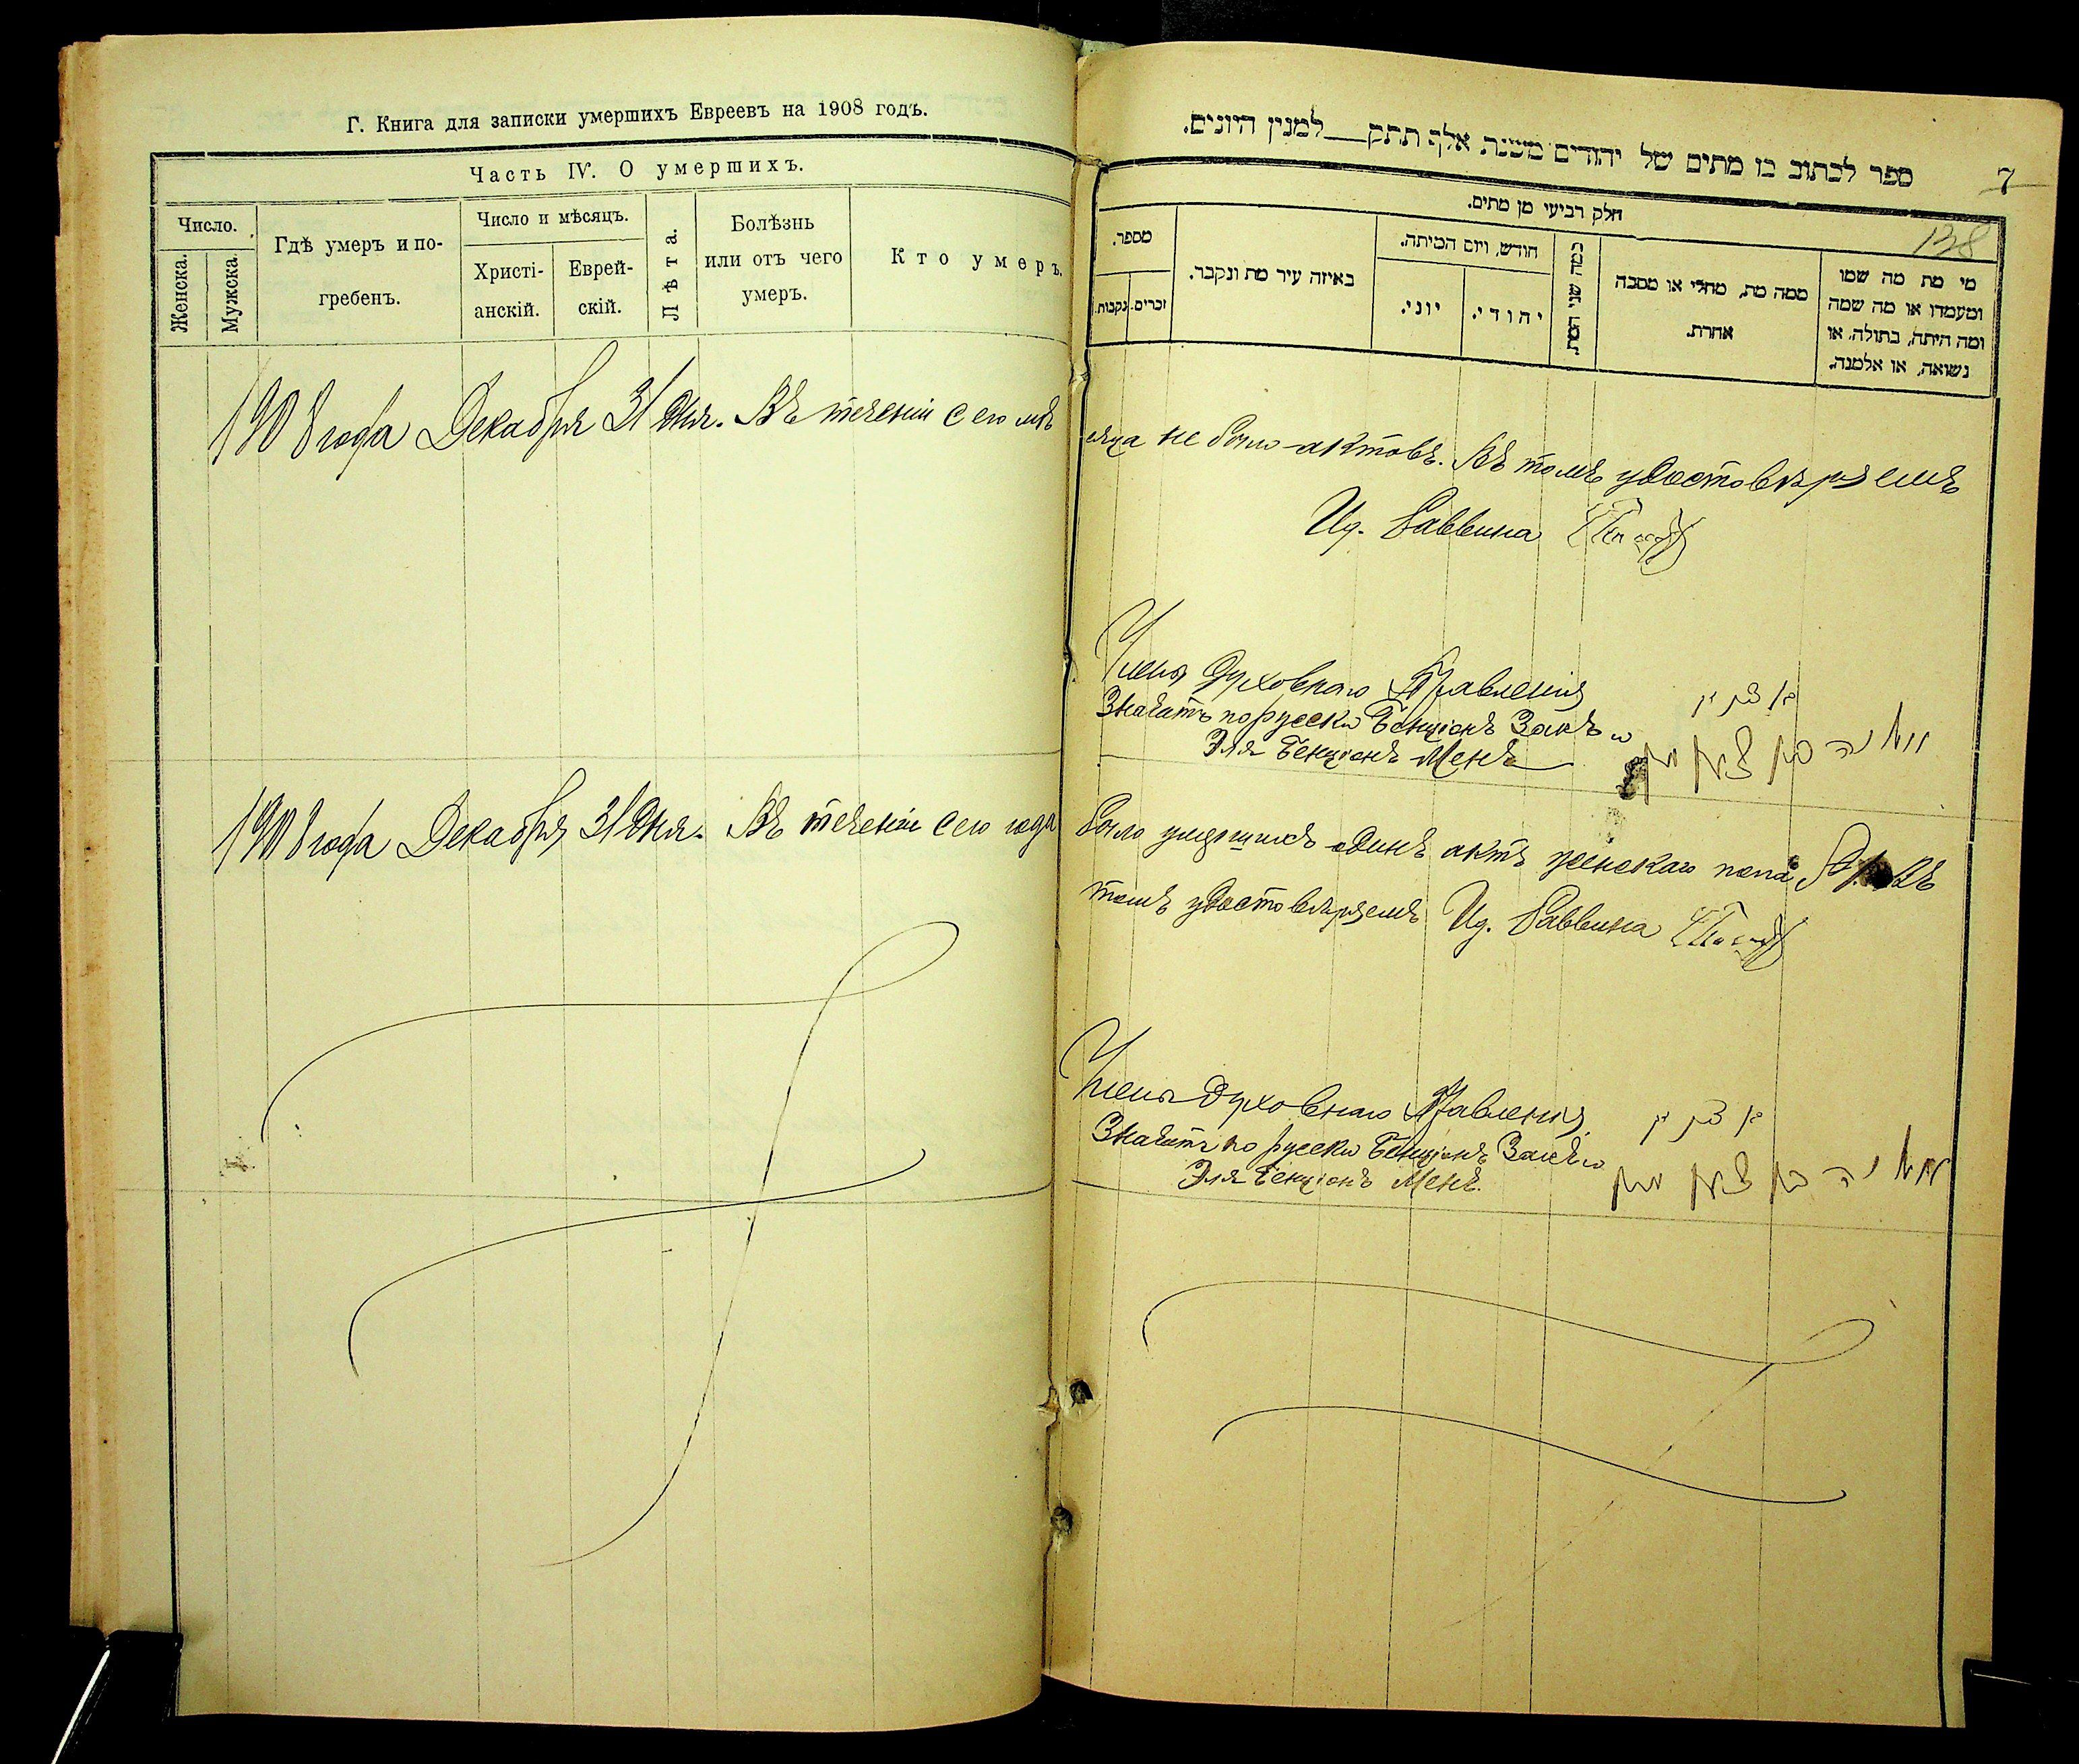 Г. Книга для записки умершихъ Евреевъ на 1908 годъ.
Часть IV. О умершихъ.
Число.
Женска.
Мужска.
Гдѣ умеръ и по-
гребенъ.
Число и мѣсяцъ.
Христі-
анскій.
Еврей-
скій.
Лѣта.
Болѣзнь
или отъ чего
умеръ.
Кто умеръ.
1908 года Декабря 31 дня. Въ теченіи сего мѣ
1908 года Декабря 31 дня. Въ теченіи сего года
ספר לכתוב בו מתים של יהודים משנת אלף תתק למנין היונים.
7
138
חלק רביעי מן מתים.
מספר.
נקבות.
זכרים.
באיזה עיר מת ונקבר.
חודש, ויום המיתה.
יוני.
יהודי.
כמה שני המת.
ממה מת, מחלי או מסבה
אחרת.
מי מת מה שמו
ומעמדו או מה שמה
ומה היתה, בתולה, או
נשואה, או אלמנה.
сяца не было актовъ. Въ томъ удостовѣряемъ
Ид. Раввина
Члены Духовнаго Правленія
Значатъ по русски Бенціонъ Закъ и
Эля Бенціонъ Менъ
было умершихъ одинъ актъ женскаго пола Въ
томъ удостовѣряемъ Ид. Раввина
Члены Духовнаго Правленія
Значатъ по русски Бенціонъ Закъ и
Эля Бенціонъ Менъ.